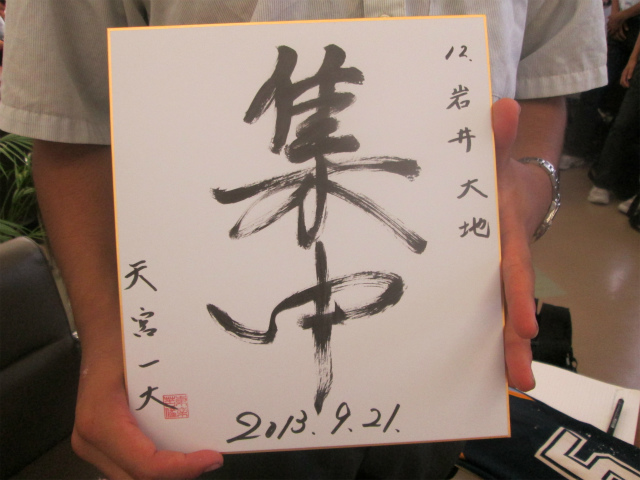 12. 岩井大地
集中
天宮一大
2013.9.21.
5